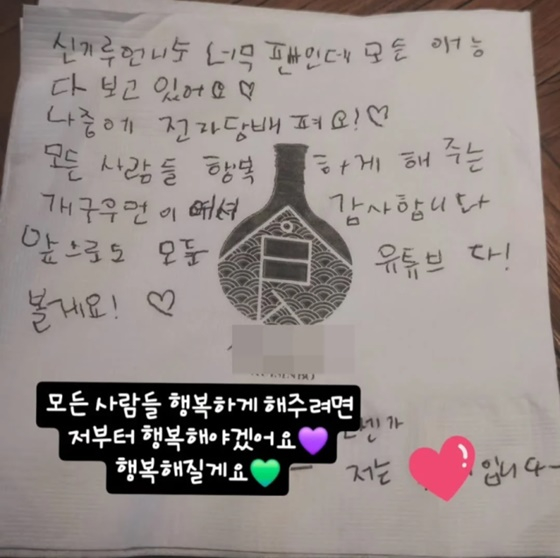 신기루언니도 너무 팬인데 모든 예능
다 보고 있어요♡
나중에 전라담배 펴요!♡
모든 사람들 행복하게 해 주는
개구우먼이 여서 감사합니다
앞으로도 모든 유튜브 다!
볼게요! ♡
모든 사람들 행복하게 해주려면
저부터 행복해야겠어요💜
행복해질게요💚
저는
입니다